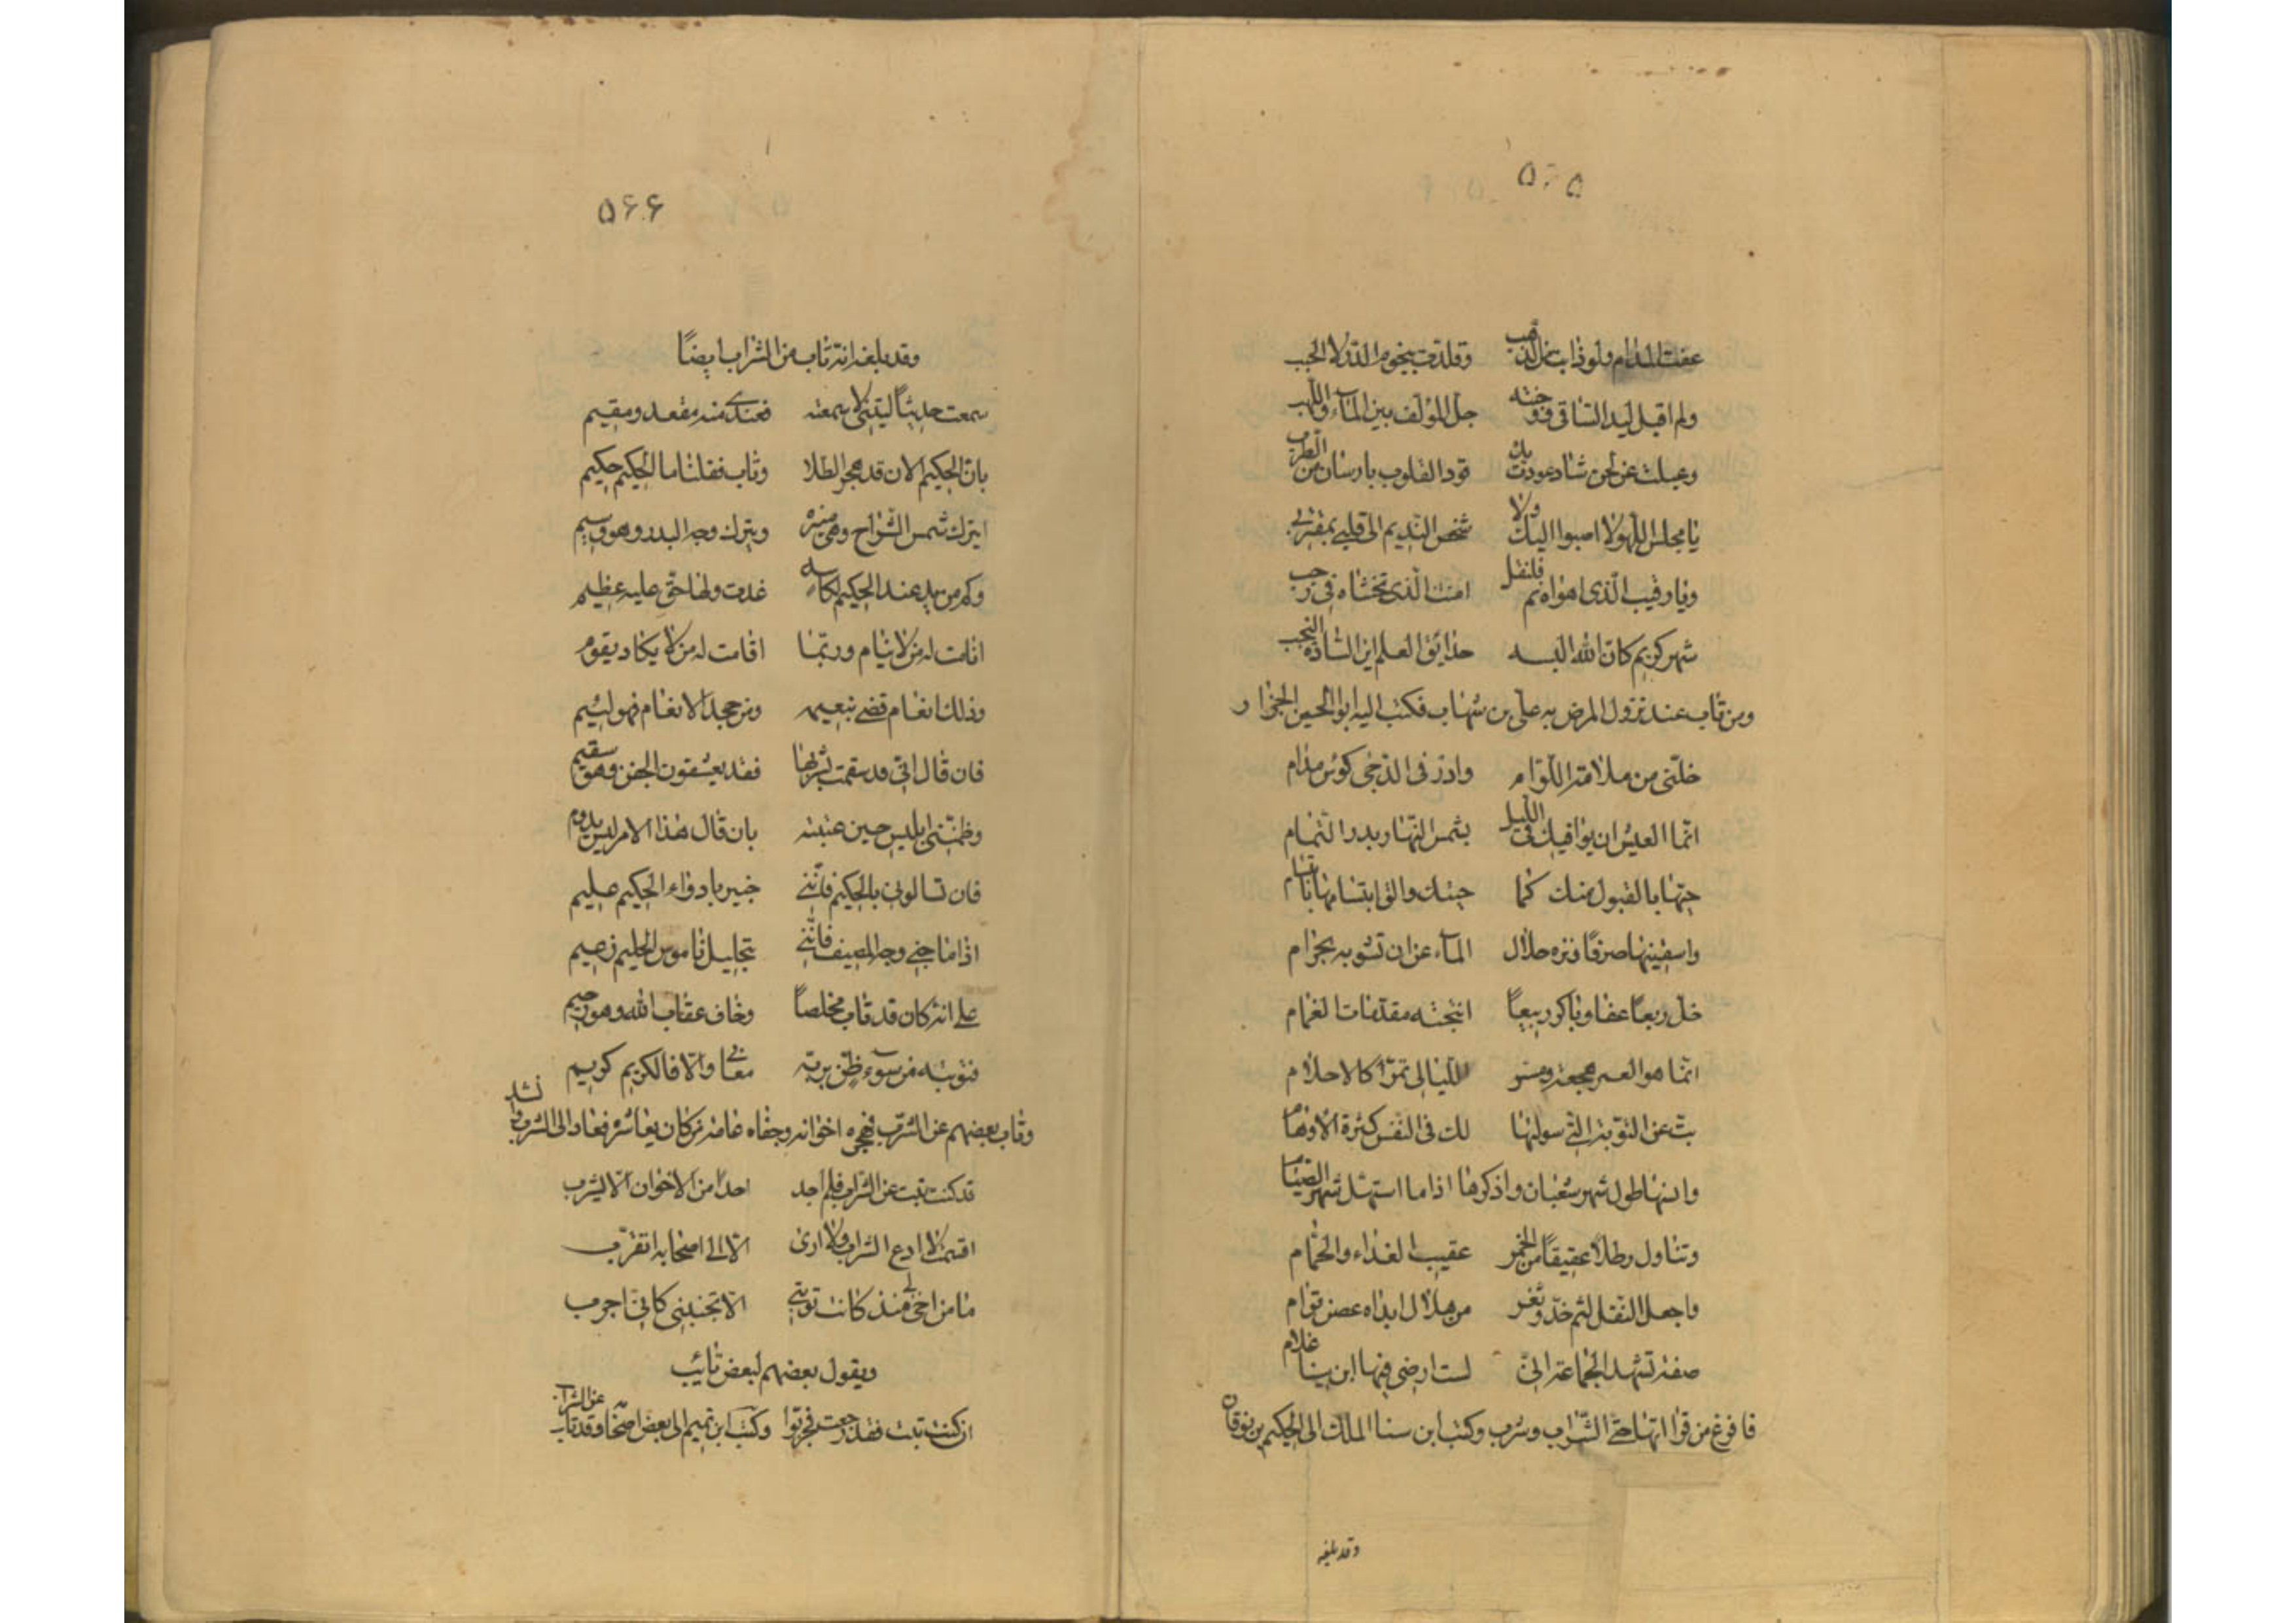 ۵۶۵
عفت المدام ولو ذابت من الذهب وقلدت بنجوم الدر لا الحبب
ولم اقبل ليد الساقى فو جنته جل المؤلف بين الماء واللهب
وعبلت عن لحن شاد عودت بان قود القلوب بارسان من الطرب
يا مجلس اللهو لا اصبوا اليك ولا شخص النديم الى قلبى بمقترب
ويا رقيب الذى اهواه نم فلنقل امنت الذى تخشاه فى رجب
شهر كريم كان الله البسه حدايق العلم ابن الشادة النجب
ومن تاب عند نزول المرض به على بن شهاب فكتب اليه ابو الحسين الجزار
خلنى من ملامة اللوام وادر فى الدجى كوس مدام
انما العيش ان يوافيك فى الليل بشمس النهار بدر التمام
حتها بالقبول منك كما حبتك والق ابتسامها بابتسام
واسقينها صرفا فنزه حلال الماء عن ان تشوبه بحرام
خل ربعا عفا وباكر ربيعا انتجته مقدمات الغمام
انما هو العمر هجعة ومسر الليالى تمر كالاحلام
تب عن التوبة التى سولتها لك فى النفس كثرة الاوهام
وانسها طول شهر شعبان واذكرها اذا ما استهل شهر الصيام
وتناول رطلا عقيقا من الخمر عقيب الغداء والحمام
واجعل النقل لثم خد وثغر من هلال ابداه غصن قوام
صفة تشهد الجماعة انى لست ارضى فيها ابن سينا غلام
فا فرغ من قرا اتها حتى الشراب وشرب وكتب ابن سنا الملك الى الحكيم بن نوفان
وقد بلغه
۵۶۶
وقد بلغه انه تاب من الشراب ايضا
سمعت حديثا ليتنى لا سمعته فعندى منه مقعد ومقيم
بان الحكيم الان قد هجر الطلا وتاب فقلنا ما الحكيم حكيم
ايترك شمس الراح وهى منيرة ويترك وجه البدر وهو وسيم
وكم من يد عند الحكيم لكاسه غدت ولها حق عليه عظيم
انامت له من لا ينام وربما اقامت له من لا يكاد يقوم
وذلك انعام قضى بنعيمه ومن جحد الانعام فهو لئيم
فان قال انى قد سقمت بشربها فقد يعشقون الجفن وهو سقيم
وظننى ابليس حين عتبته بان قال هذا الامر ليس يدوم
فان تسالونى بالحكيم فاننى خبير بادواء الحكيم عليم
اذا ما جنى وجه المصيف فاننى بتجليل ناموس الحليم زعيم
على انه كان قد تاب مخلصا وخاف عقاب الله وهو رحيم
فتوبته من سوء ظن بربه معنا والا فالكريم كريم
وتاب بعضهم عن الشرب فهجره اخوانه وجفاه عامة من كان يعاشره فعاد الى الشرب وانشد
قد كنت تبت عن الشراب فلم اجد احدا من الاخوان الا ليشرب
اقسمت لا ادع الشراب ولا ارى الا الى اصحابه اتقرب
ما من اخ لى منذ كانت توبتى الا تجنبنى كانى اجرب
ويقول بعضهم لبعض تائب
ان كنت تبت فقد رجعت فجربوا وكتب ابن تميم الى بعض اصحابه وقد تاب عن الشراب